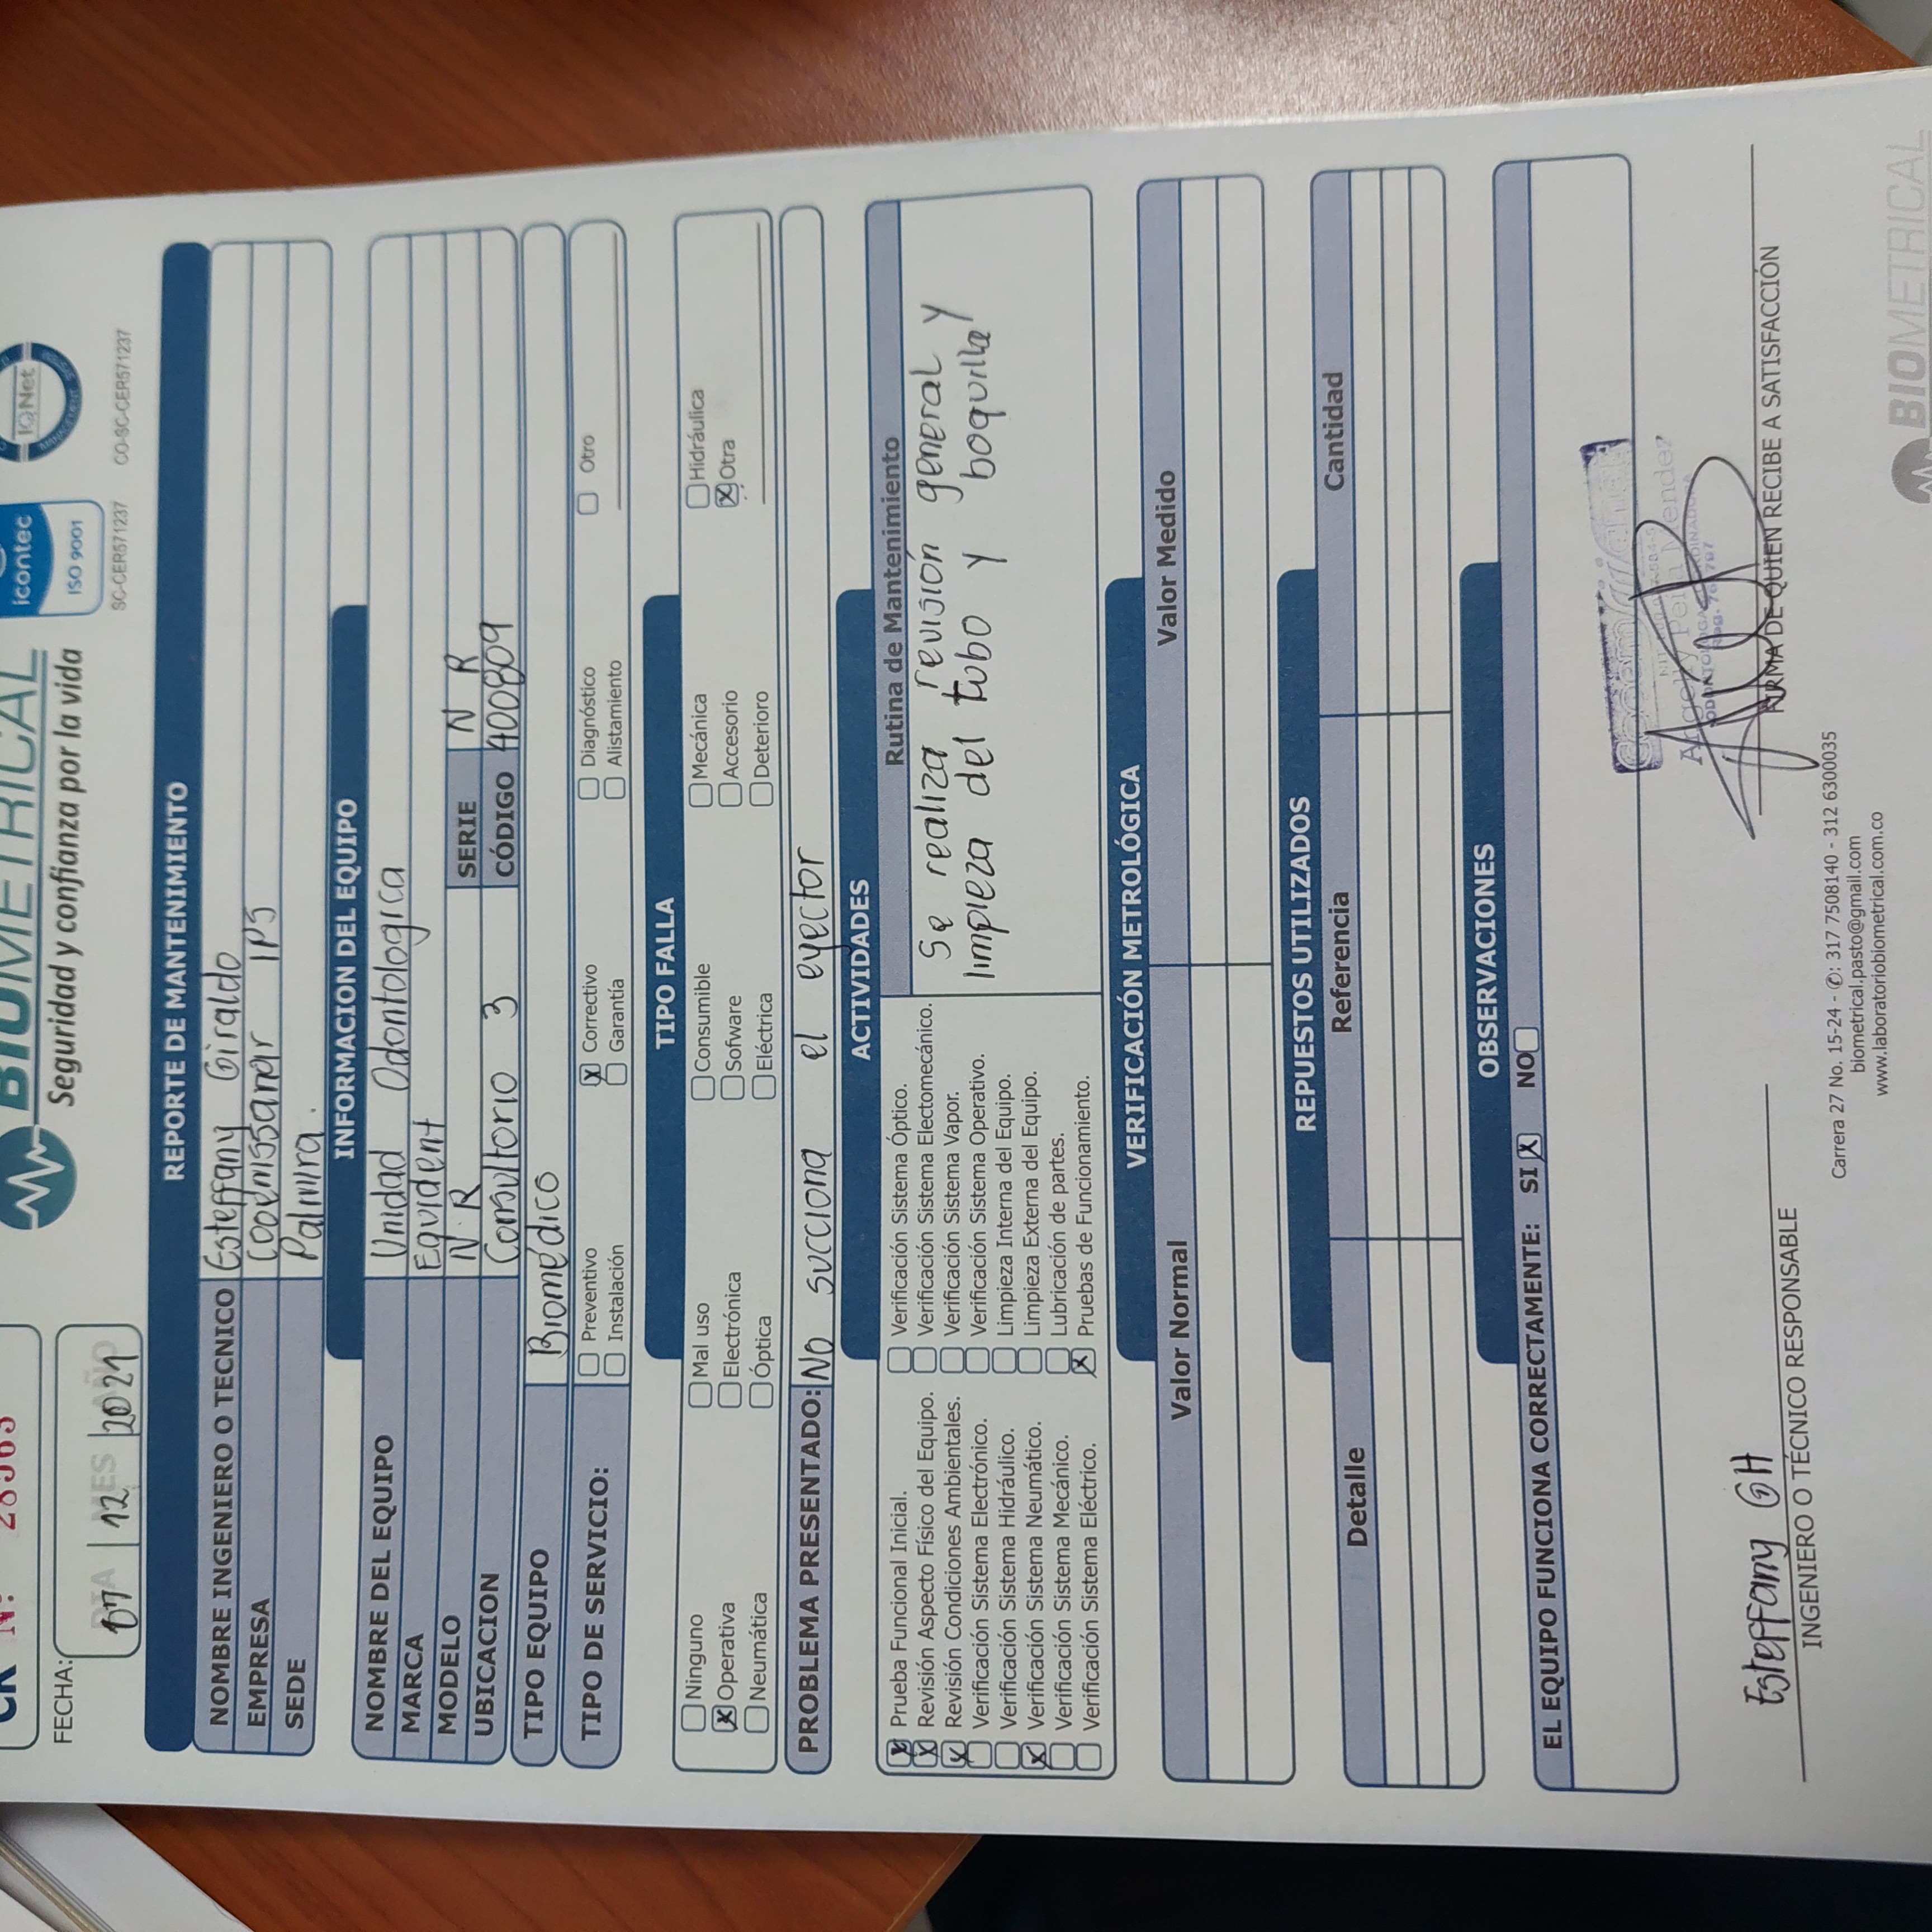 CR Nº:
FECHA: 07 | 12 | 2021
DIA MES AÑO
BIOMETRICAL
Seguridad y confianza por la vida
icontec
ISO 9001
SC-CER571237
IQNet
CO-SC-CER571237
REPORTE DE MANTENIMIENTO
NOMBRE INGENIERO O TECNICO Esteffany Giraldo
EMPRESA Cooemssanar IPS
SEDE Palmira.
INFORMACION DEL EQUIPO
NOMBRE DEL EQUIPO Unidad Odontologica
MARCA Equident
MODELO N.R SERIE N R
UBICACION Consultorio 3 CÓDIGO 400809
TIPO EQUIPO Biomédico
TIPO DE SERVICIO: Preventivo X Correctivo Diagnóstico Otro
Instalación Garantía Alistamiento
TIPO FALLA
Ninguno Mal uso Consumible Mecánica Hidráulica
X Operativa Electrónica Sofware Accesorio X Otra
Neumática Óptica Eléctrica Deterioro
PROBLEMA PRESENTADO: No succiona el eyector
ACTIVIDADES
X Prueba Funcional Inicial.
X Revisión Aspecto Físico del Equipo.
X Revisión Condiciones Ambientales.
Verificación Sistema Electrónico.
Verificación Sistema Hidráulico.
X Verificación Sistema Neumático.
Verificación Sistema Mecánico.
Verificación Sistema Eléctrico.
Verificación Sistema Óptico.
Verificación Sistema Electomecánico.
Verificación Sistema Vapor.
Verificación Sistema Operativo.
Limpieza Interna del Equipo.
Limpieza Externa del Equipo.
Lubricación de partes.
X Pruebas de Funcionamiento.
Rutina de Mantenimiento
Se realiza revisión general y
limpieza del tubo y boquilla
VERIFICACIÓN METROLÓGICA
Valor Normal Valor Medido
REPUESTOS UTILIZADOS
Detalle Referencia Cantidad
OBSERVACIONES
EL EQUIPO FUNCIONA CORRECTAMENTE: SI X NO
Angelly Peña Mendez
ODONTÓLOGA COORDINADORA
Esteffany GH
INGENIERO O TÉCNICO RESPONSABLE
FIRMA DE QUIEN RECIBE A SATISFACCIÓN
Carrera 27 No. 15-24 - ✆: 317 7508140 - 312 6300035
biometrical.pasto@gmail.com
www.laboratoriobiometrical.com.co
BIOMETRICAL